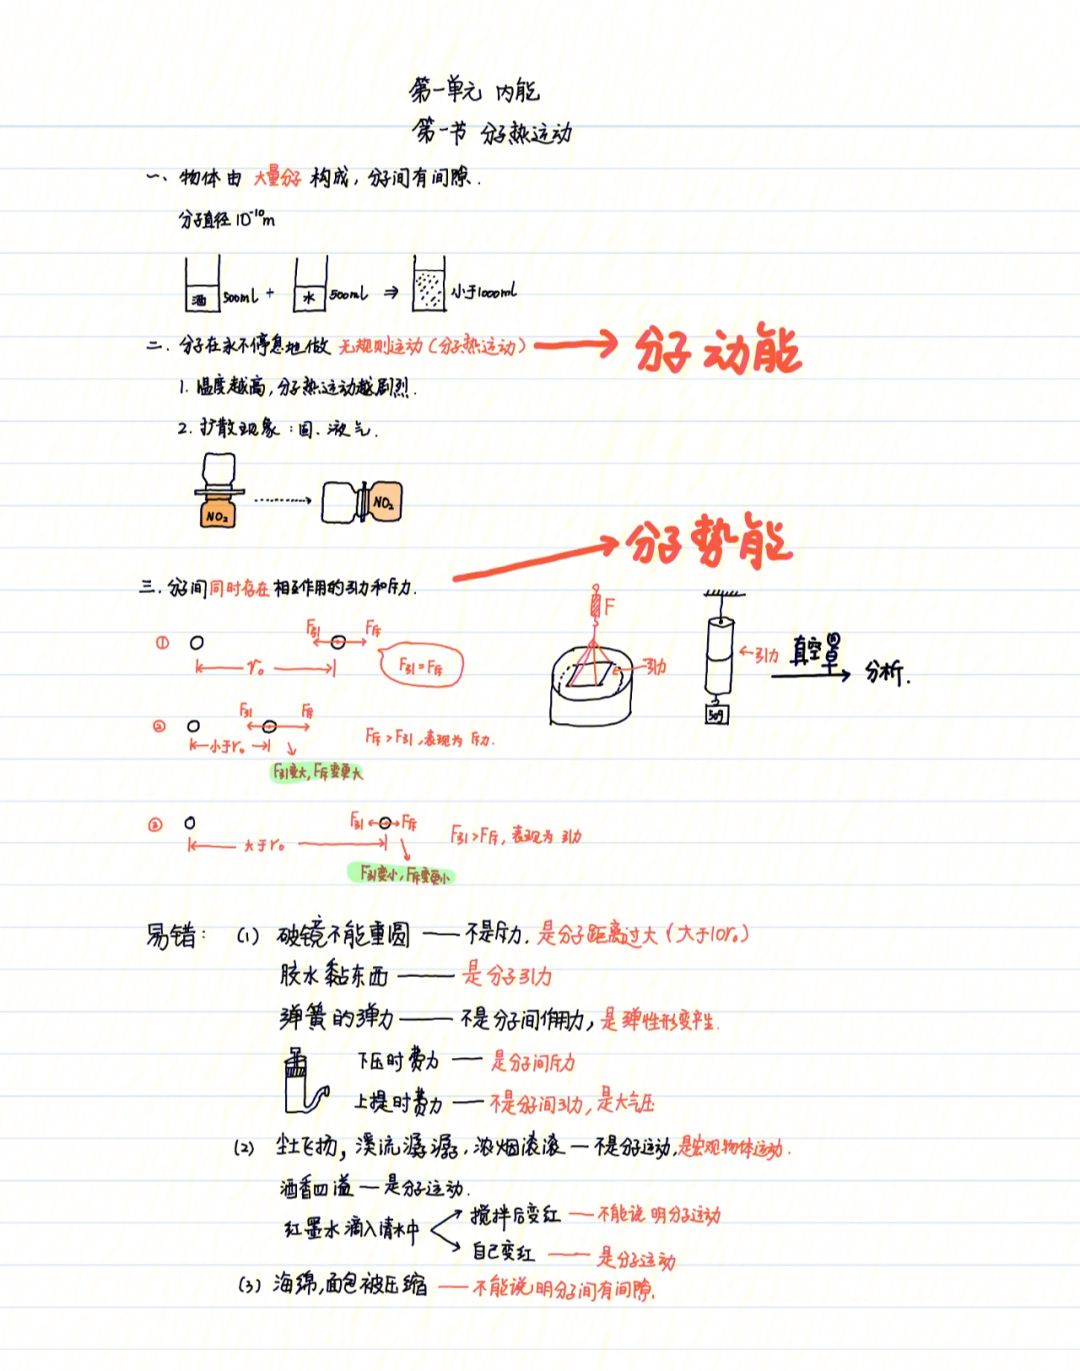 第一单元 内能
第一节 分子热运动
一、物体由 大量分子 构成，分子间有间隙.
分子直径 10⁻¹⁰m
酒 500mL + 水 500mL ⇒ 小于1000mL
二. 分子在永不停息地做 无规则运动(分子热运动) → 分子动能
1. 温度越高,分子热运动越剧烈.
2. 扩散现象:固、液气.
NO₂ NO₂
分子势能
三.分子间同时存在相互作用的引力和斥力.
① F引 F斥
r₀
F引=F斥
② F引 F斥
小于r₀
F斥>F引,表现为 斥力.
F引变大,F斥变更大
③ F引 F斥
大于r₀
F引>F斥,表现为 引力
F引变小,F斥变更小
F
引力
引力
50g
真空罩
分析.
易错: (1) 破镜不能重圆 —— 不是斥力. 是分子距离过大(大于10r₀)
胶水黏东西 —— 是分子引力
弹簧的弹力 —— 不是分子间作用力, 是弹性形变产生.
下压时费力 — 是分子间斥力
上提时费力 — 不是分子间引力, 是大气压
(2) 尘土飞扬, 溪流潺潺, 浓烟滚滚 — 不是分子运动,是宏观物体运动.
酒香四溢 — 是分子运动.
红墨水滴入清水中
搅拌后变红 — 不能说明分子运动
自己变红 — 是分子运动
(3) 海绵,面包被压缩 — 不能说明分子间有间隙.